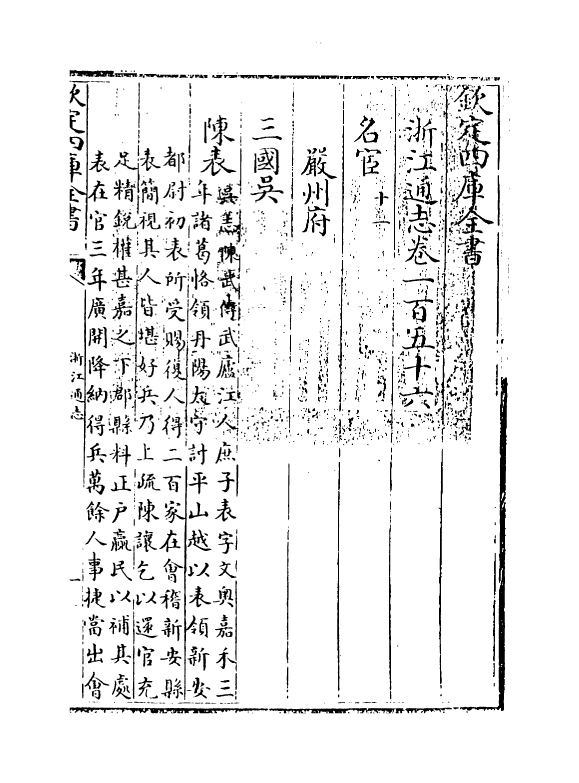 欽定四庫全書
浙江通志卷一百五十六
名宦十一
嚴州府
三國吳
陳表吳志陳武傳武廬江人庶子表字文奥嘉禾三
年諸葛恪領丹陽太守討平山越以表領新安
都尉初表所受賜復人得二百家在會稽新安縣
表簡視其人皆堪好兵乃上疏陳讓乞以還官充
足精銳權甚嘉之下郡縣料正戸羸民以補其處
表在官三年廣開降納得兵萬餘人事捷當出會
欽定四庫全書
浙江通志
一